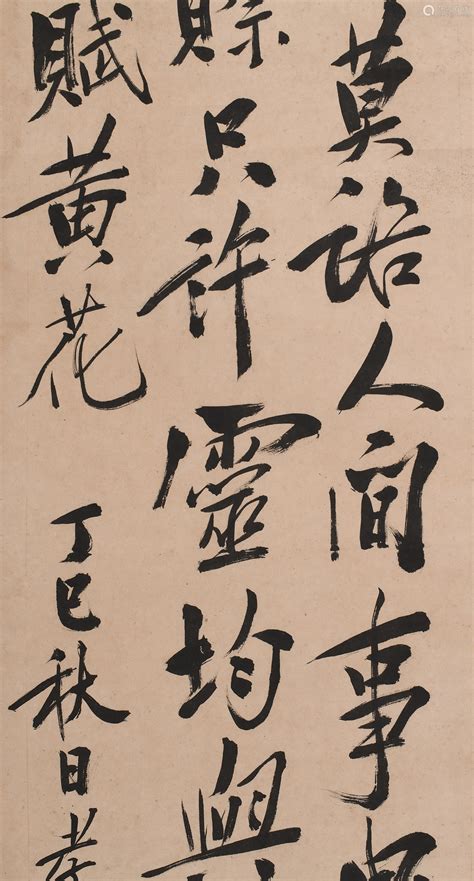 莫人間事
賒只許靈均與
賦黃花
丁巳秋日孝